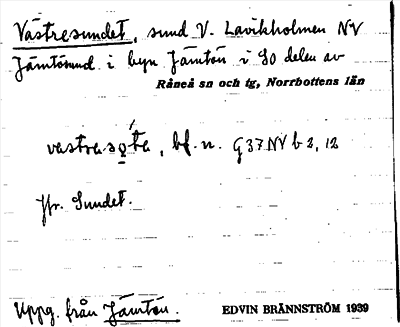 Västresundet, sund V. Lavikholmen NV
Jämtösund i byn Jämtön i SO delen av
Råneå sn och tg, Norrbottens län
bf. n. G37NV b 2, 12
Jfr. Sundet.
Uppg. från Jämtön.
EDVIN BRÄNNSTRÖM 1939